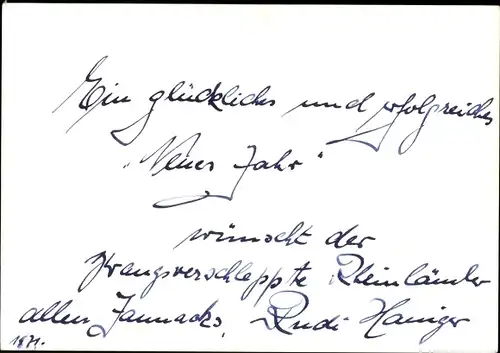 Ein glückliches und erfolgreiches
"Neues Jahr"
wünscht der
zwangsverschleppte Rheinländer
allen Jannacks, Rudi Haniger
1871.